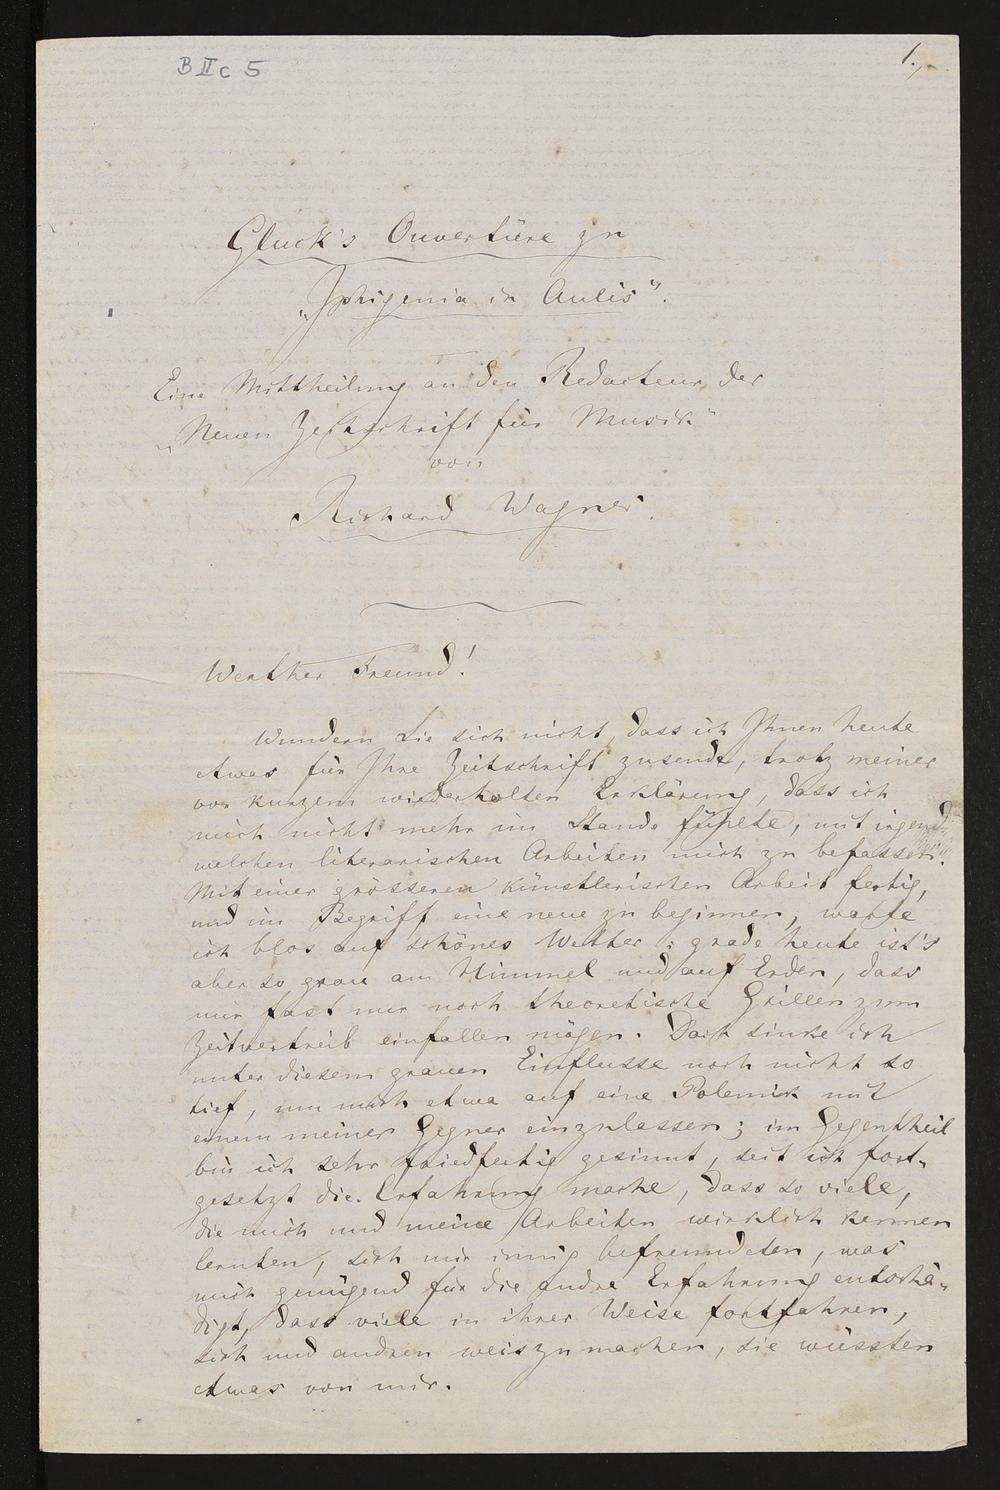 B II c 5
1.,
Gluck's Ouvertüre zu
„Iphigenia in Aulis".
Eine Mittheilung an den Redacteur der
„Neuen Zeitschrift für Musik"
von
Richard Wagner.
Werther Freund!
Wundern Sie sich nicht, dass ich Ihnen heute
etwas für Ihre Zeitschrift zusende, trotz meiner
vor kurzem wiederholten Erklärung, dass ich
mich nicht mehr im Stande fühlte, mit irgend
welchen literarischen Arbeiten mich zu befassen.
Mit einer grösseren künstlerischen Arbeit fertig,
und im Begriff eine neue zu beginnen, warte
ich blos auf schönes Wetter: grade heute ist's
aber so grau am Himmel und auf Erden, dass
mir fast nur noch theoretische Grillen zum
Zeitvertreib einfallen mögen. Doch sinke ich
unter diesem grauen Einflusse noch nicht so
tief, um mich etwa auf eine Polemik mit
einem meiner Gegner einzulassen; im Gegentheil
bin ich sehr friedfertig gesinnt, seit ich fort-
gesetzt die Erfahrung mache, dass so viele,
die mich und meine Arbeiten wirklich kennen
lernten, sich mir innig befreundeten, was
mich genügend für die andre Erfahrung entschä-
digt, dass viele in ihrer Weise fortfahren,
sich und andren weiszumachen, sie wüssten
etwas von mir.